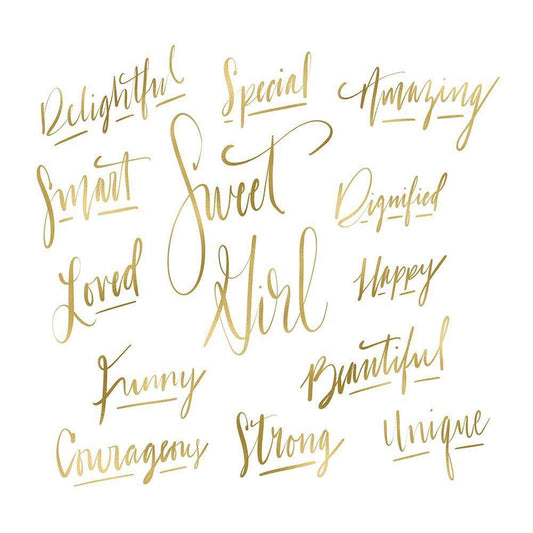 Delightful
Special
Amazing
Smart
Sweet
Girl
Dignified
Loved
Happy
Funny
Beautiful
Courageous
Strong
Unique